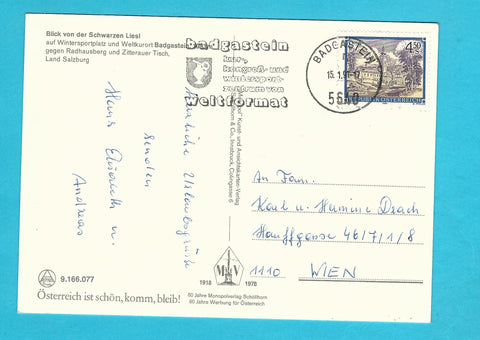 Blick von der Schwarzen Liesl
auf Wintersportplatz und Weltkurort Badgastein
gegen Radhausberg und Zitterauer Tisch,
Land Salzburg
badgastein
kur-,
kongreß- und
wintersport-
zentrum von
weltformat
BADGASTEIN
15.1.91-17
5640
4.50
REPUBLIK ÖSTERREICH
Herzliche Urlaubsgrüße
senden
Hans Elisabeth u.
Andreas
Kunst- und Ansichtskarten-Verlag
Schöllhorn & Co., Innsbruck, Colingasse
An Fam.
Karl u. Hermine Drach
Hauffgasse 46/7/1/8
1110 WIEN
1918 M V 1978
60 Jahre Monopolverlag Schöllhorn
60 Jahre Werbung für Österreich
9.166.077
Österreich ist schön, komm, bleib!